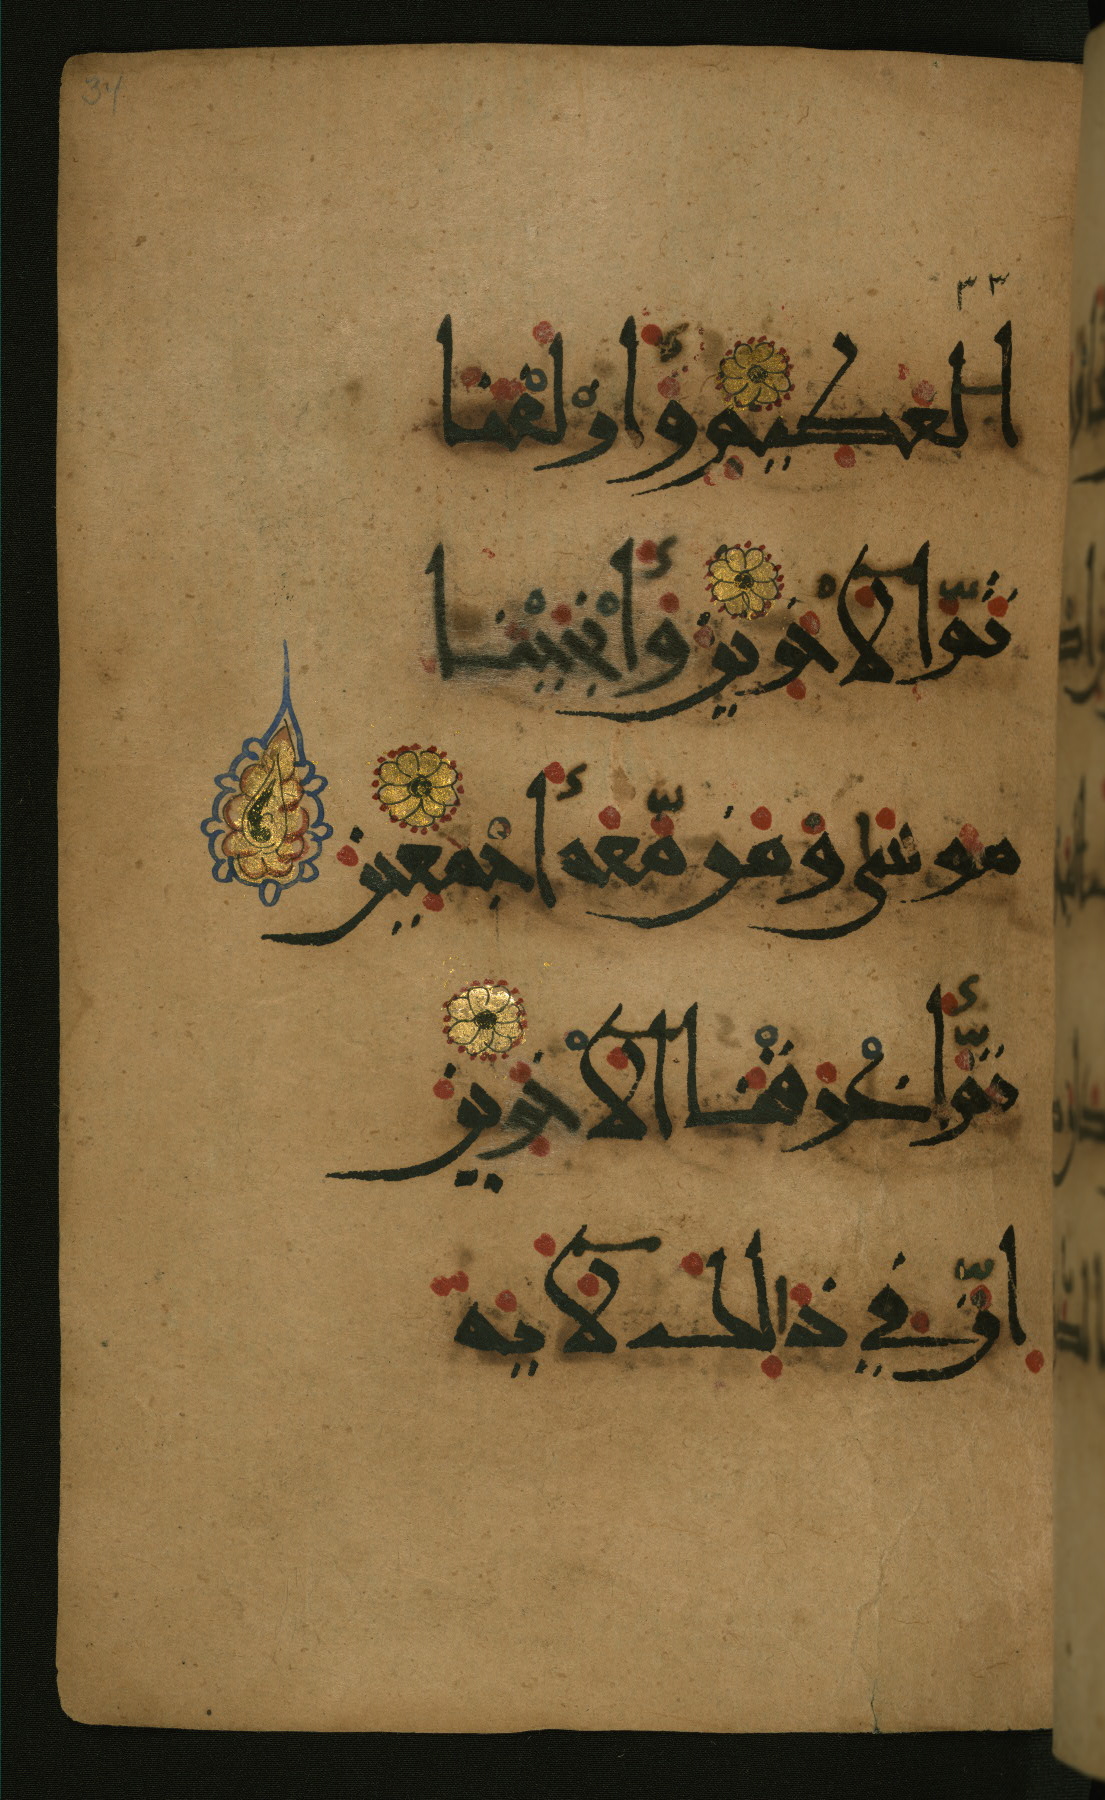 34
٣٣
العظيم وأزلفنا
ثمّ الاخرين وأنجينا
موسى ومن مّعه أجمعين
ثمّ أغرقنا الاخرين
انّ في ذالك لاية